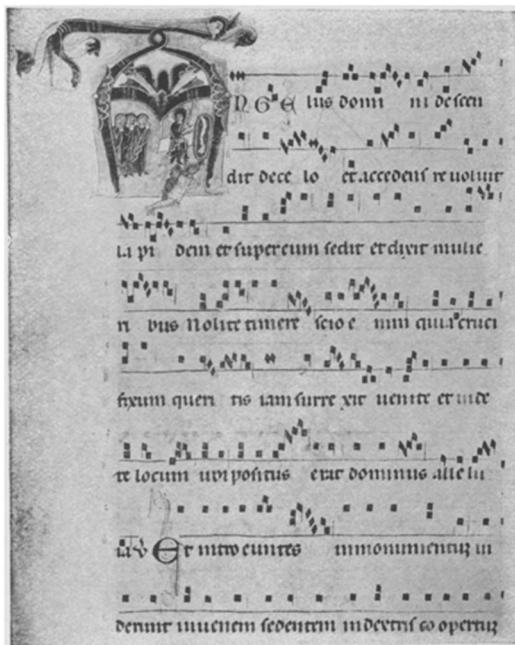 ANGE lus domi ni descen
dit de ce lo et accedens re voluit
la pi dem et super eum sedit et dixit mulie
ri bus Nolite timere scio e nim quia cruci
fixum queri tis iam surre xit venite et vide
te locum ubi positus erat dominus alle lu
ia V Et introeuntes in monumentum vi
derunt iuvenem sedentem in dextris co opertum